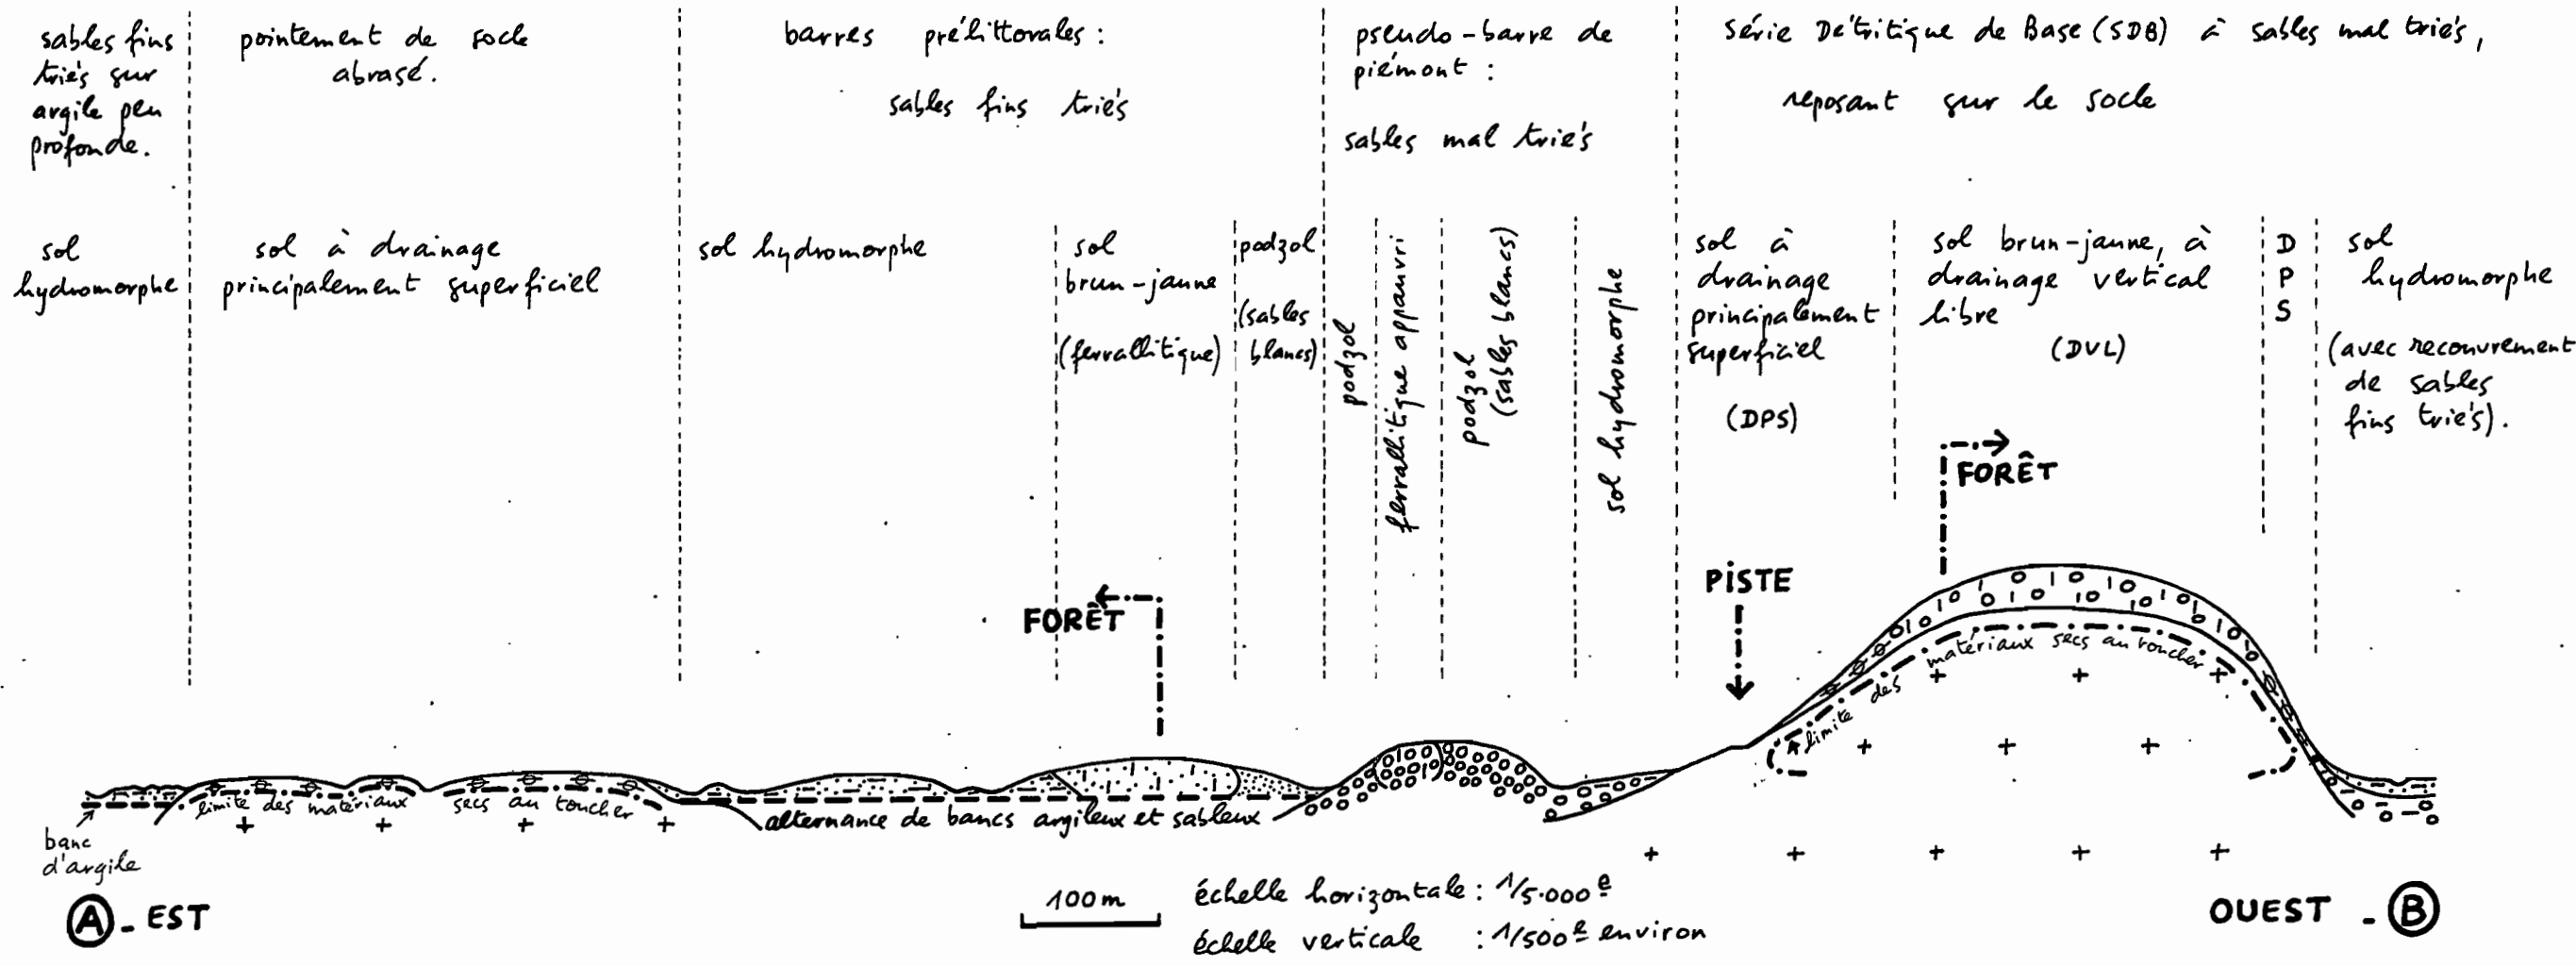 sables fins
triés sur
argile peu
profonde.
pointement de socle
abrasé.
barres prélittorales :
sables fins triés
pseudo-barre de
piémont :
sables mal triés
série Détritique de Base (SDB) à sables mal triés,
reposant sur le socle
sol
hydromorphe
sol à drainage
principalement superficiel
sol hydromorphe
sol
brun-jaune
(ferrallitique)
podzol
(sables
blancs)
podzol
ferrallitique appauvri
podzol
(sables blancs)
sol hydromorphe
sol à
drainage
principalement
superficiel
(DPS)
sol brun-jaune, à
drainage vertical
libre
(DVL)
D
P
S
sol
hydromorphe
(avec recouvrement
de sables
fins triés).
FORÊT
FORÊT
PISTE
limite des matériaux secs au toucher
limite des matériaux secs au toucher
alternance de bancs argileux et sableux
banc
d'argile
A - EST
100 m
échelle horizontale : 1/5.000e
échelle verticale : 1/500e environ
OUEST - B